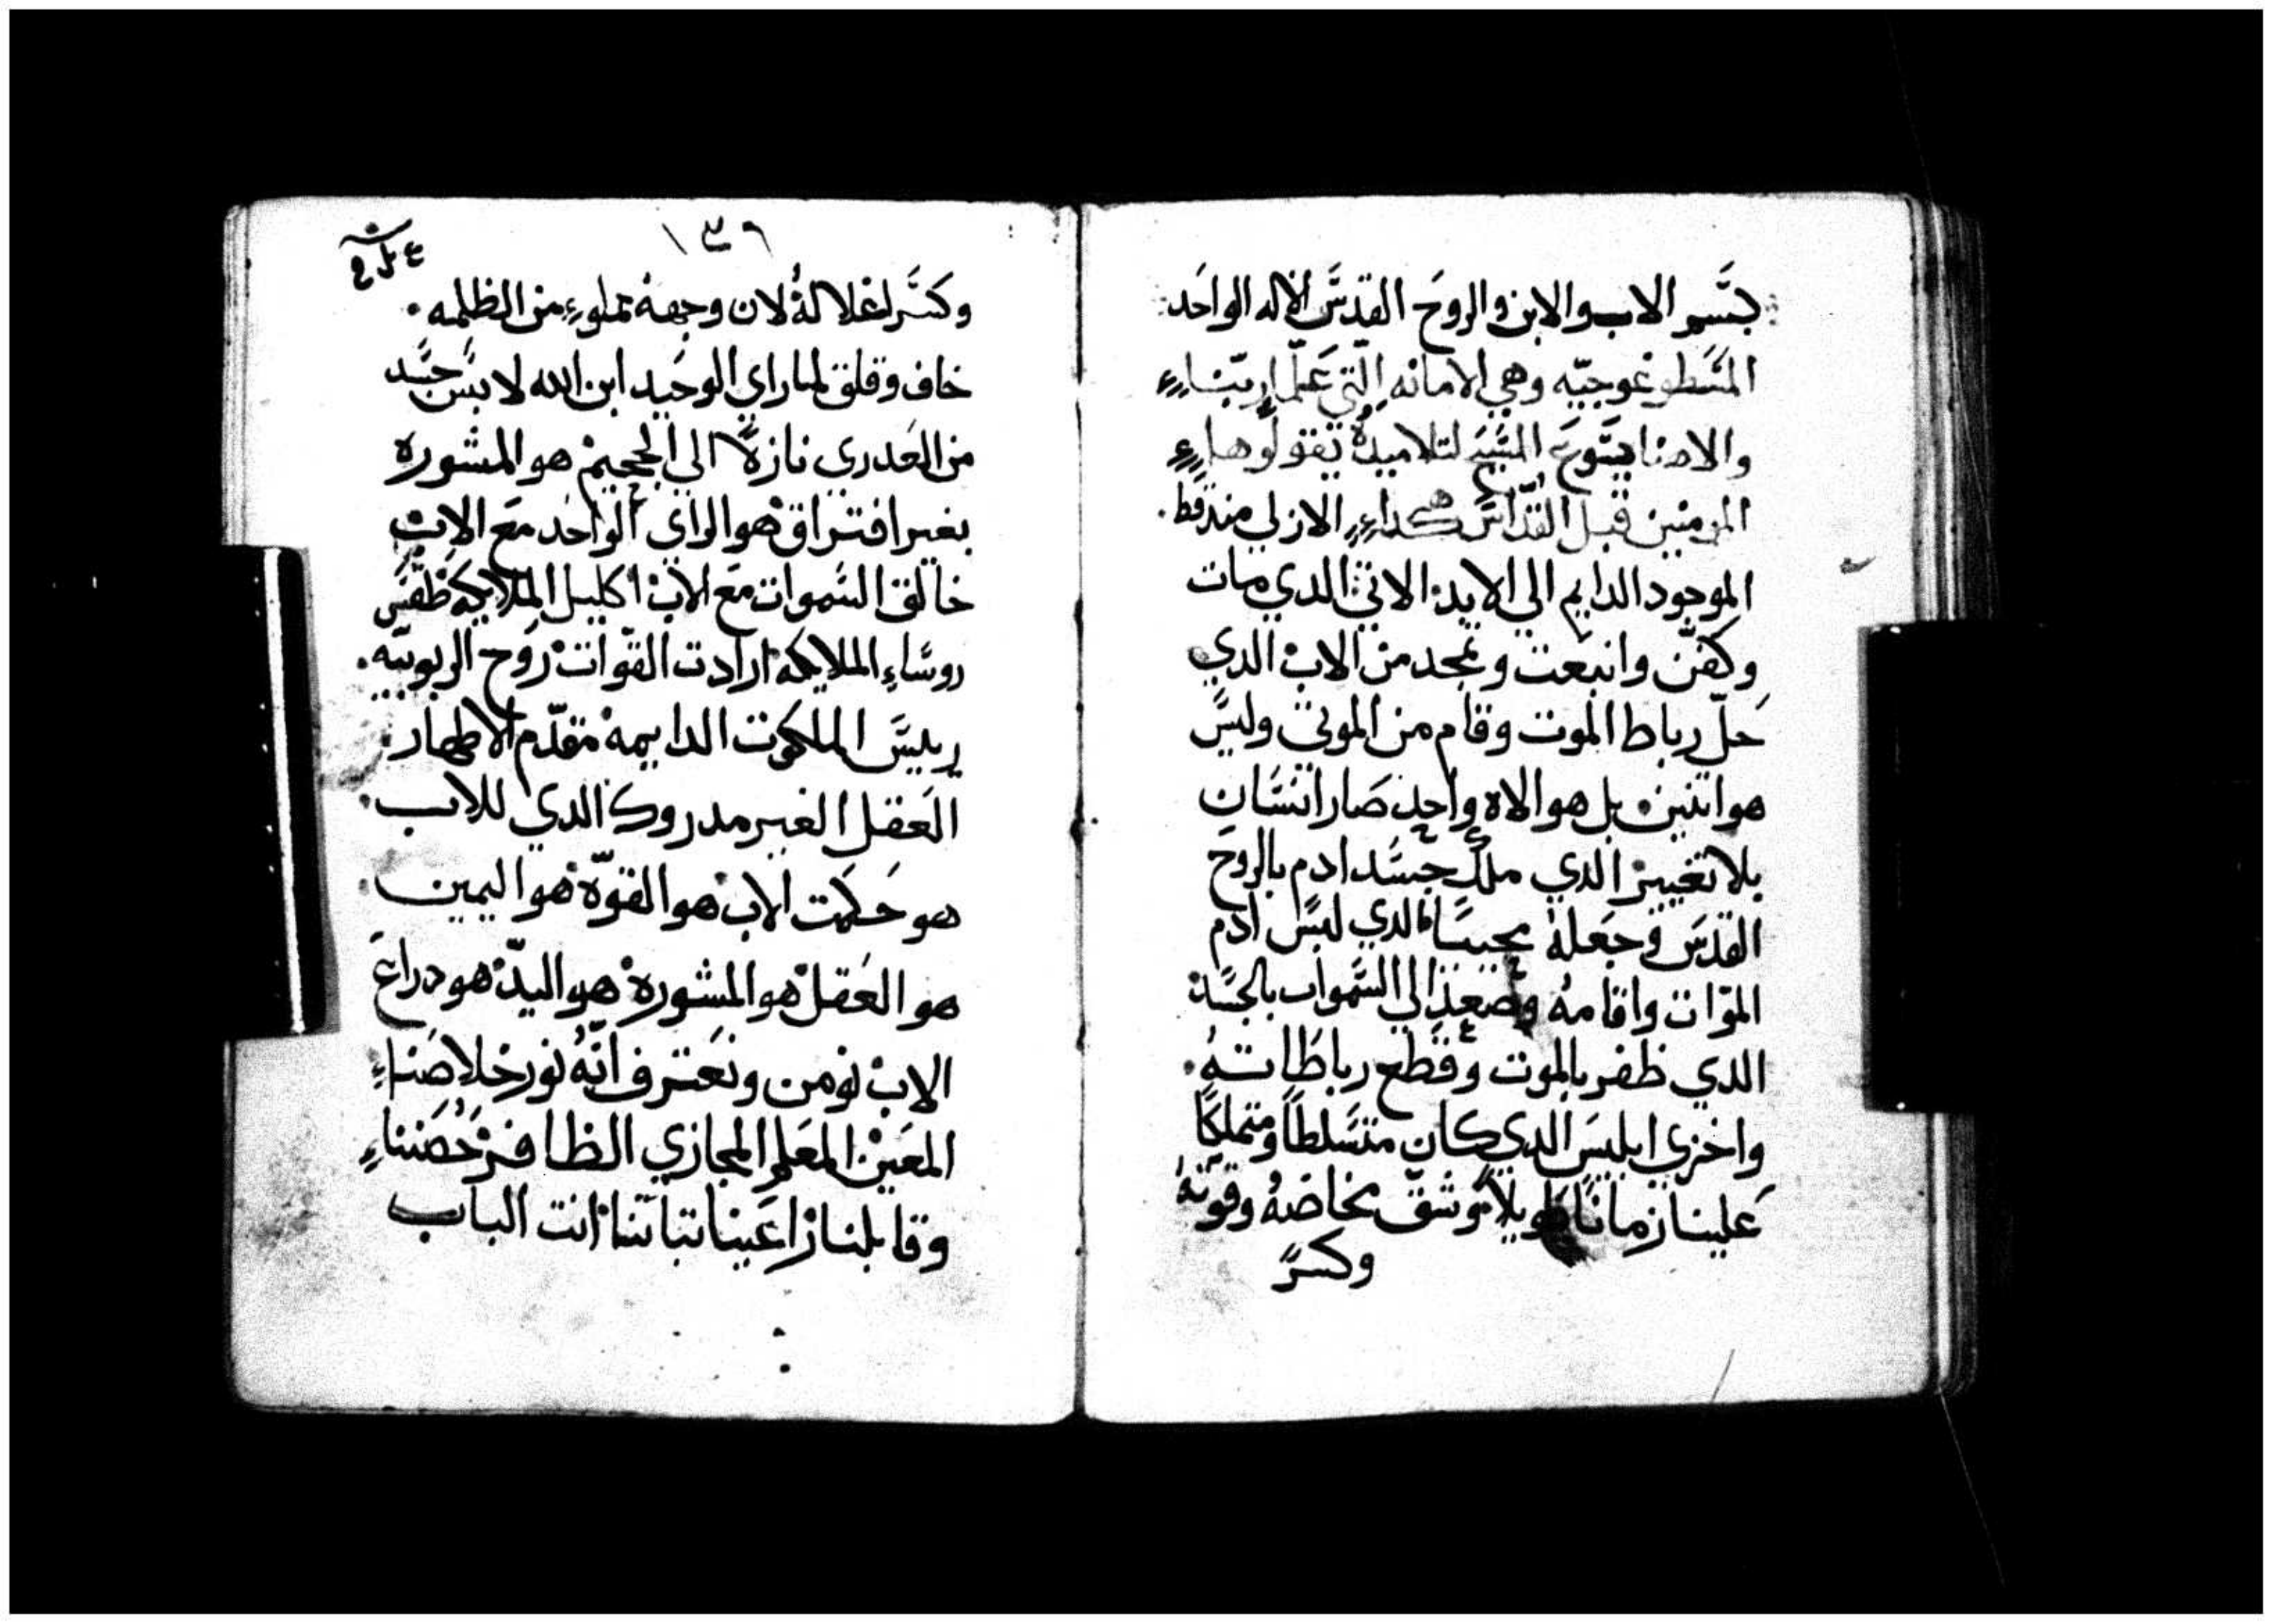 بسم الاب والابن والروح القدس الاله الواحد
المسطوغوجيه وهي الامانه التي علمها ربنا
والاهنا يسوع المسيح لتلاميده تقولوها
المومنين قبل القداس هكدا الازلي مند قط
الموجود الدايم الي الابد الاتي الدي مات
وكفن وانبعت وتمجد من الاب الدي
حل رباط الموت وقام من الموتي وليس
هو اتنين بل هو الاه واحد صار انسان
بلا تغيير الدي ملك جسد ادم بالروح
القدس وجعله محيسا الدي لبس ادم
الموات واقامه وصعد الي السموات بالجسد
الدي ظفر بالموت وقطع رباطاته
واخزي ابليس الدي كان متسلطا ومتملكا
علينا زمانا طويلا وشق مخاضه وقوته
وكسر
١٣٦
وكسر اغلاله لان وجهه مملوء من الظلمه
خاف وقلق لما راي الوحيد ابن الله لابس جسد
من العدري نازلا الي الجحيم هو المشوره
بغير افتراق هو الراي الواحد مع الاب
خالق السموات مع الاب اكليل الملايكه طقس
روساء الملايكه ارادت القوات روح الربوبيه
رييس الملكوت الدايمه مقدم الاطهار
العقل الغير مدروك الدي للاب
هو حكمت الاب هو القوه هو اليمين
هو العقل هو المشوره هو اليد هو دراع
الاب نومن ونعترف انه نور خلاصنا
المعين المعلم المجازي الظافر حصننا
وقابلنا راعينا تباتنا انت الباب